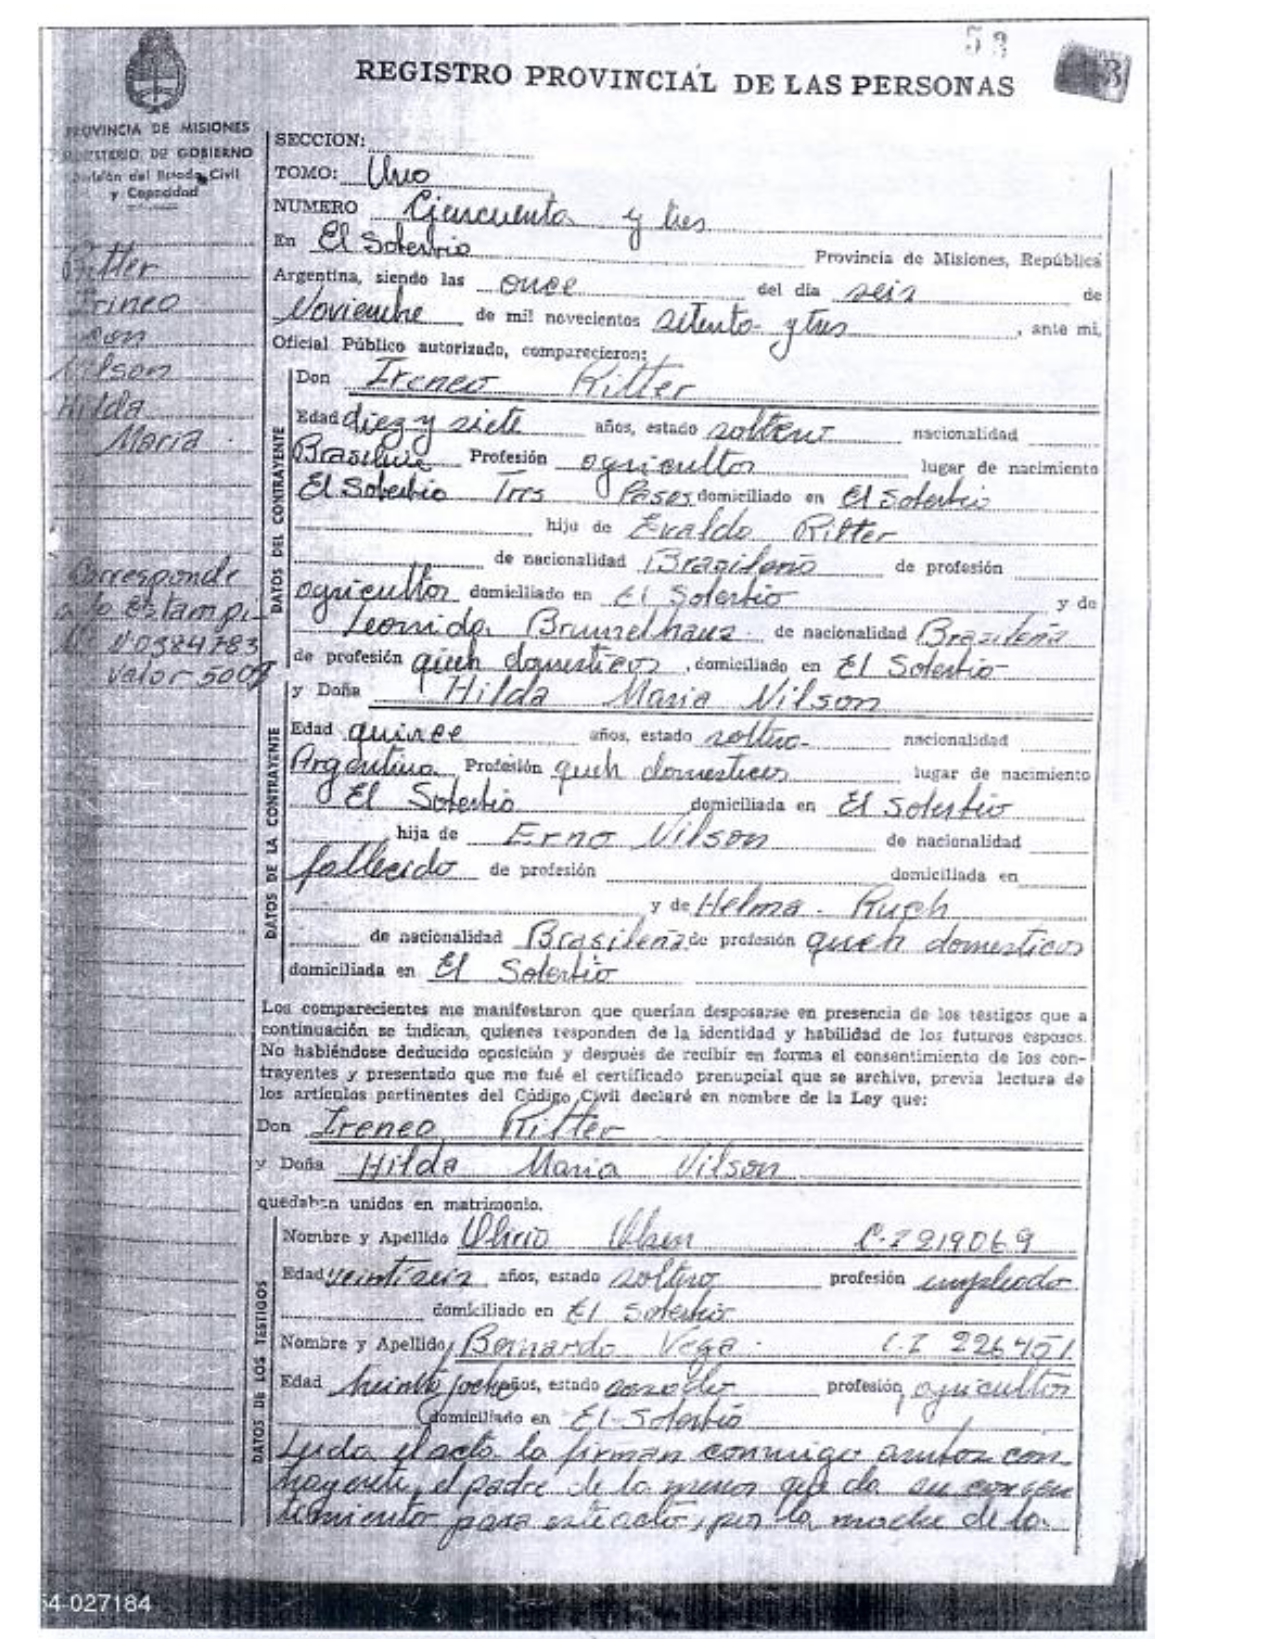 53
REGISTRO PROVINCIAL DE LAS PERSONAS
PROVINCIA DE MISIONES
MINISTERIO DE GOBIERNO
División del Estado Civil
y Capacidad
Ritter
Irineo
con
Vilson
Hilda
Maria.
Corresponde
Estampi-
Nº 00384783
Valor 500
SECCION:
TOMO: Uno
NUMERO Cincuenta y tres
En El Soberbio Provincia de Misiones, República
Argentina, siendo las once del día seis de
Noviembre de mil novecientos setenta y tres, ante mi,
Oficial Público autorizado, comparecieron:
DATOS DEL CONTRAYENTE
Don Ireneo Ritter
Edad diez y siete años, estado soltero nacionalidad
Profesión agricultor lugar de nacimiento
El Soberbio Tres Pasos domiciliado en El Soberbio
hijo de Evaldo Ritter
de nacionalidad Brasileño de profesión
agricultor domiciliado en El Soberbio y de
Leonida de nacionalidad Brasileña
de profesión queh domesticos, domiciliado en El Soberbio
DATOS DE LA CONTRAYENTE
y Doña Hilda Maria Vilson
Edad quince años, estado soltera nacionalidad
Argentina Profesión queh domesticos lugar de nacimiento
El Soberbio domiciliada en El Soberbio
hija de Erno Vilson de nacionalidad
fallecido de profesión domiciliada en
y de Helma. Ruch
de nacionalidad Brasileña de profesión queh domesticos
domiciliada en El Soberbio
Los comparecientes me manifestaron que querían desposarse en presencia de los testigos que a
continuación se indican, quienes responden de la identidad y habilidad de los futuros esposos.
No habiéndose deducido oposición y después de recibir en forma el consentimiento de los con-
trayentes y presentado que me fué el certificado prenupcial que se archiva, previa lectura de
los artículos pertinentes del Código Civil declaré en nombre de la Ley que:
Don Ireneo Ritter
y Doña Hilda Maria Vilson
quedaban unidos en matrimonio.
DATOS DE LOS TESTIGOS
Nombre y Apellido C.I 219069
Edad veintiseis años, estado soltero profesión empleado
domiciliado en El Soberbio
Nombre y Apellido Bernardo Vega. C.I 226451
Edad treinta y ocho años, estado casado profesión agricultor
domiciliado en El Soberbio
Leida el acta la firman conmigo ambos con
trayente, el padre de la menor que da su consen
timiento para este acto, por la madre de la
54-027184